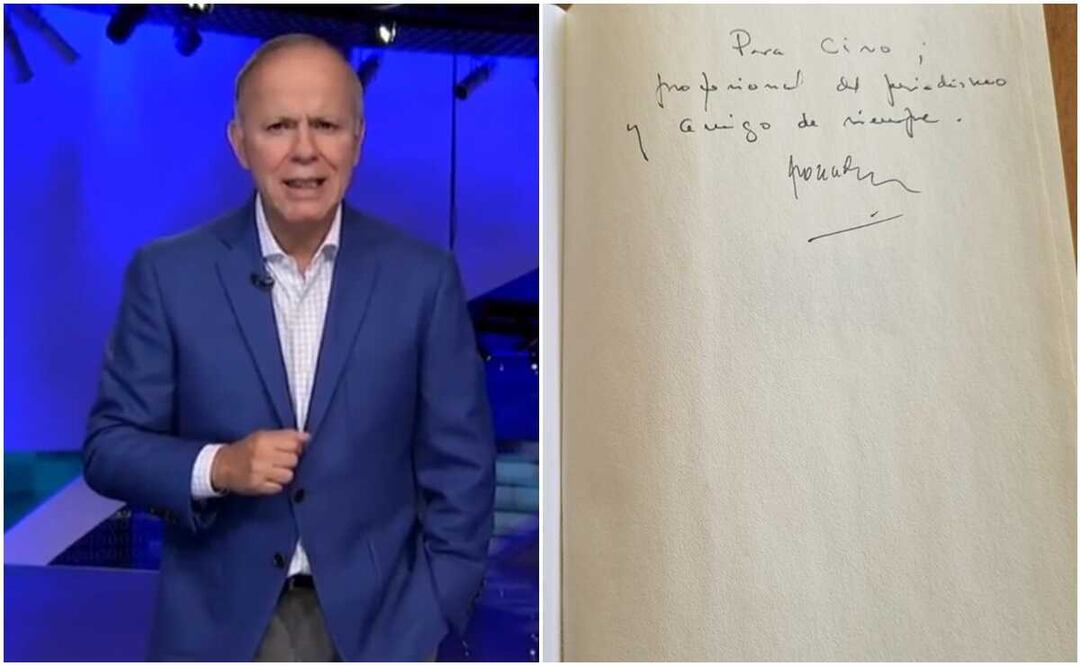 Para Ciro ;
profesional del periodismo
y amigo de siempre .